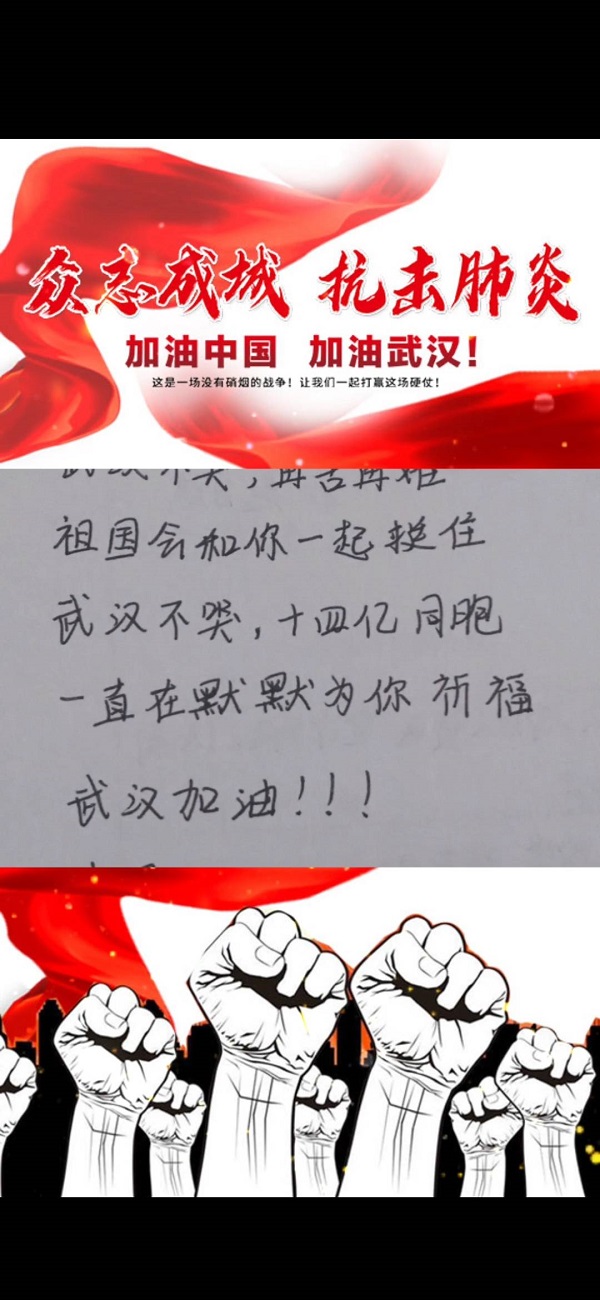 众志成城 抗击肺炎
加油中国 加油武汉!
这是一场没有硝烟的战争!让我们一起打赢这场硬仗!
武汉不哭,再苦再难
祖国会和你一起挺住
武汉不哭,十四亿同胞
一直在默默为你祈福
武汉加油!!!